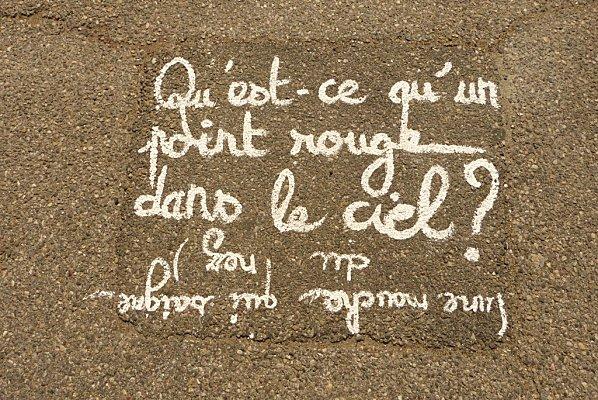 Qu'est-ce qu'un
point rouge
dans le ciel ?
(une mouche qui saigne
du nez)